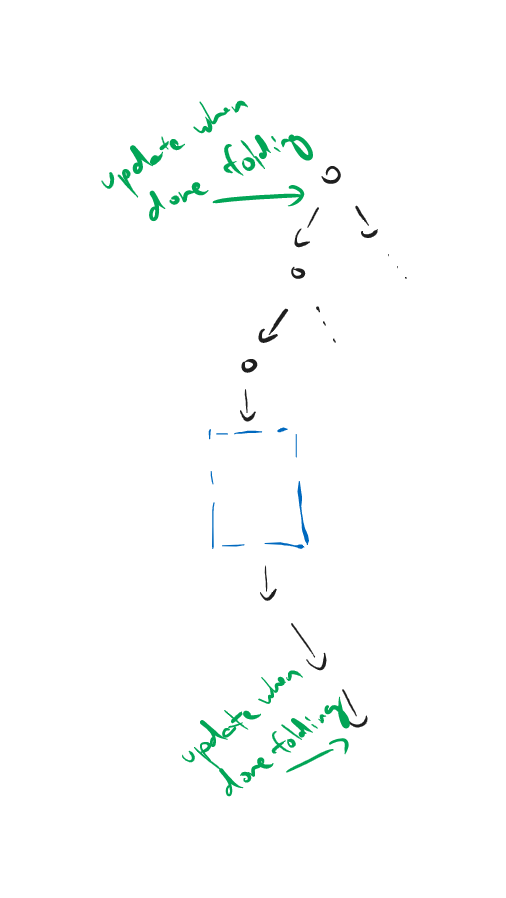 update when
done folding
update when
done folding